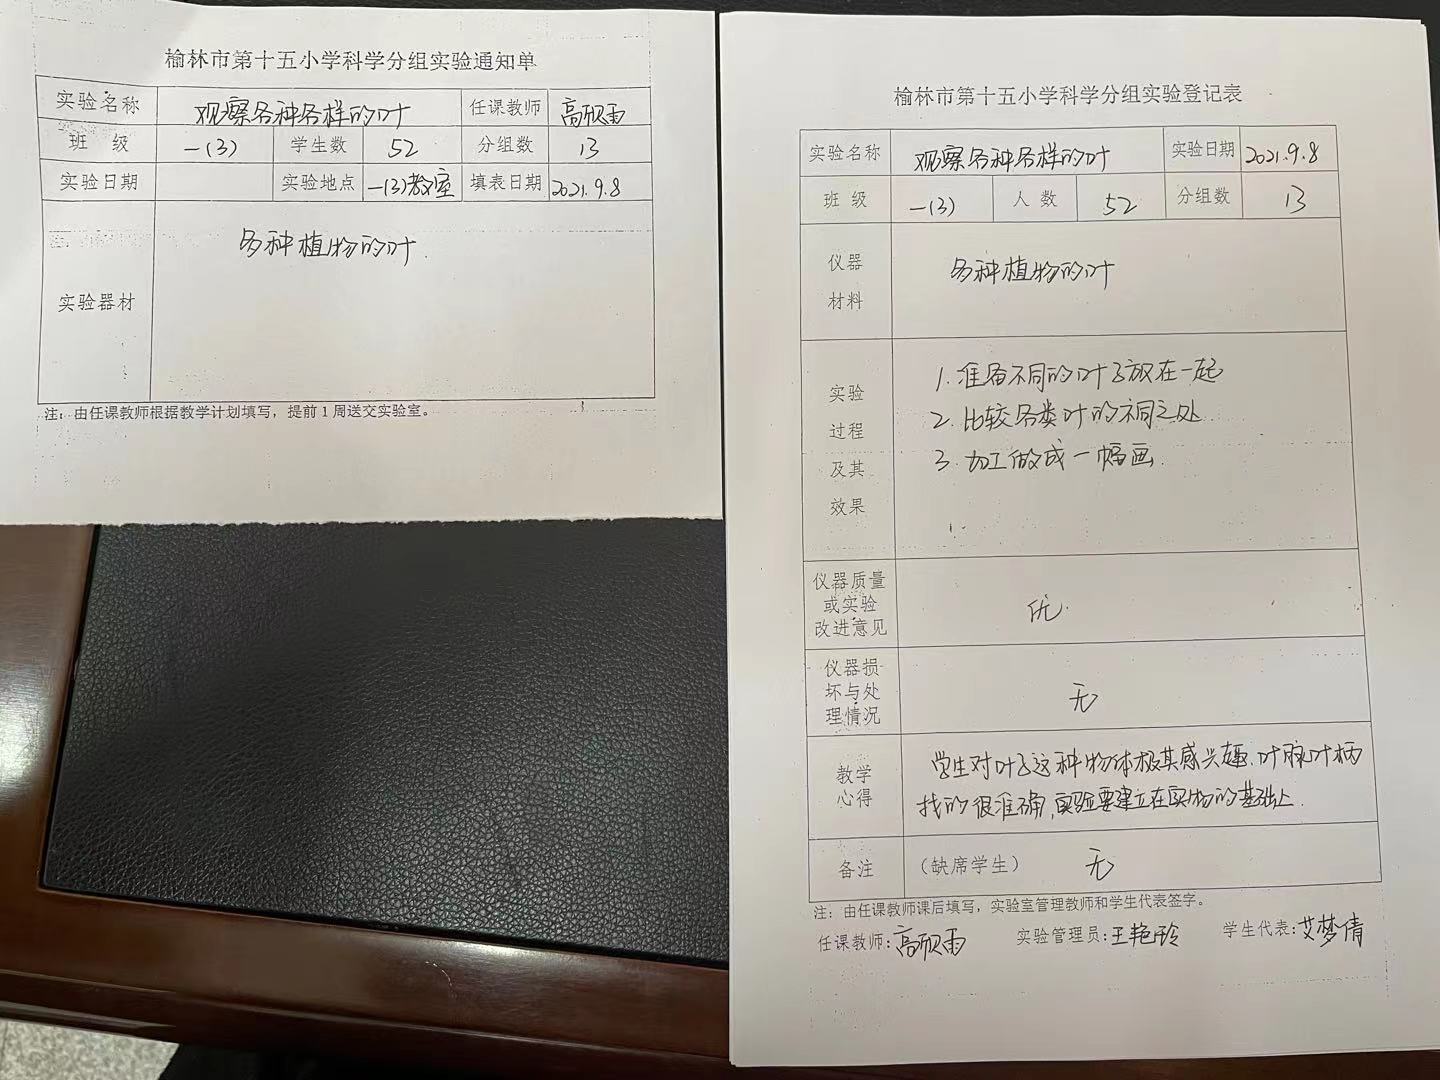 榆林市第十五小学科学分组实验通知单
实验名称 观察各种各样的叶 任课教师 高欣雨
班 级 一(3) 学生数 52 分组数 13
实验日期 实验地点 一(3)教室 填表日期 2021.9.8
实验器材 各种植物的叶.
注：由任课教师根据教学计划填写，提前1周送交实验室。
榆林市第十五小学科学分组实验登记表
实验名称 观察各种各样的叶 实验日期 2021.9.8
班 级 一(3) 人 数 52 分组数 13
仪器
材料
各种植物的叶
实验
过程
及其
效果
1.准备不同的叶子放在一起
2.比较各类叶的不同之处
3.加工做成一幅画.
仪器质量
或实验
改进意见
优.
仪器损
坏与处
理情况
无
教学
心得
学生对叶子这种物体极其感兴趣.叶脉叶柄
找的很准确,实验要建立在实物的基础上.
备注 （缺席学生） 无
注：由任课教师课后填写，实验室管理教师和学生代表签字。
任课教师:高欣雨 实验管理员:王艳玲 学生代表:艾梦倩